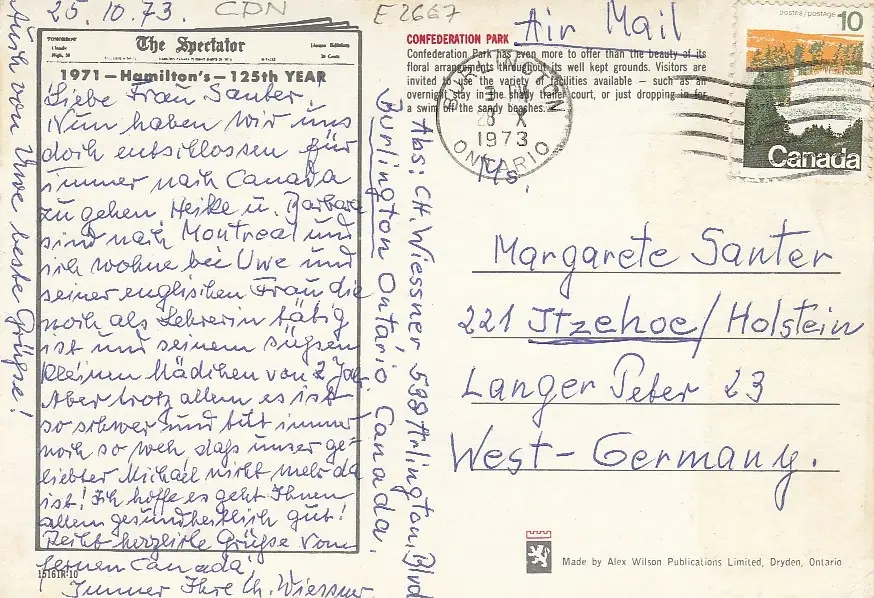 25.10.73.
CDN
E 2667
Air Mail
TOMORROW
The Spectator
1971 – Hamilton's – 125th YEAR
Liebe Frau Santer
Nun haben wir uns
doch entschlossen für
immer nach Canada
zu gehen. Heike u. Barbara
sind nach Montreal und
ich wohne bei Uwe und
seiner englischen Frau die
noch als Lehrerin tätig
ist und seinem süssen
kleinen Mädchen von 2 Jah.
Aber trotz allem es ist
so schwer und tut immer
noch so weh, dass unser ge-
liebter Michael nicht mehr da
ist! Ich hoffe es geht Ihnen
allem gesundheitlich gut!
Recht herzliche Grüsse vom
fernen Canada
Immer Ihre Ch. Wiessner
Auch von Uwe beste Grüsse!
15161R-10
Abs: CH. Wiessner 598 Arlington, Blvd
Burlington Ontario Canada.
CONFEDERATION PARK
Confederation Park has even more to offer than the beauty of its
floral arrangements throughout its well kept grounds. Visitors are
invited to use the variety of facilities available — such as an
overnight stay in the shady trailer court, or just dropping in for
a swim off the sandy beaches.
BURLINGTON
28 X
1973
ONTARIO
postes/postage 10
Canada
Ms.
Margarete Santer
221 Itzehoe/Holstein
Langer Peter 23
West-Germany.
Made by Alex Wilson Publications Limited, Dryden, Ontario